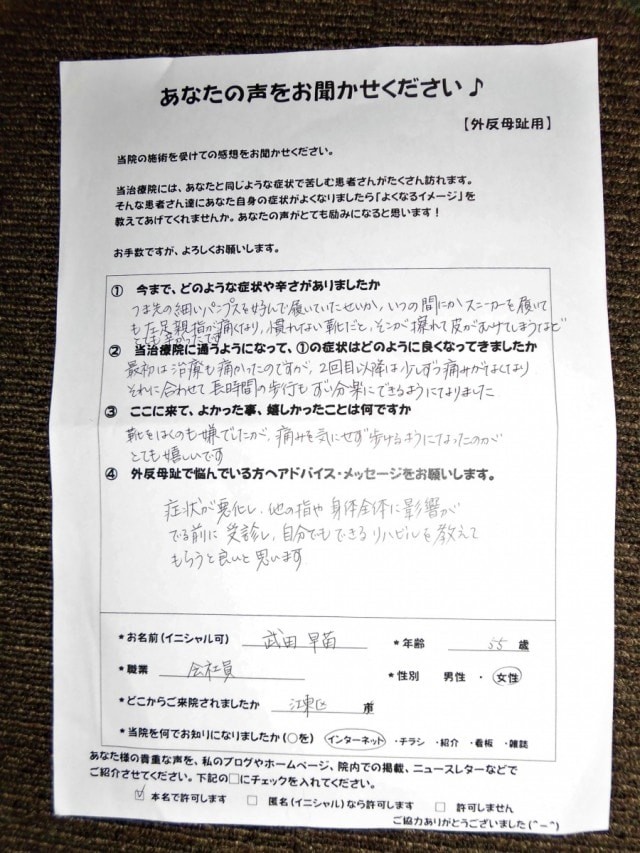 あなたの声をお聞かせください♪
【外反母趾用】
当院の施術を受けての感想をお聞かせください。
当治療院には、あなたと同じような症状で苦しむ患者さんがたくさん訪れます。
そんな患者さん達にあなた自身の症状がよくなりましたら「よくなるイメージ」を
教えてあげてくれませんか。あなたの声がとても励みになると思います！
お手数ですが、よろしくお願いします。
① 今まで、どのような症状や辛さがありましたか
つま先の細いパンプスを好んで履いていたせいか、いつの間にかスニーカーを履いて
も左足親指が痛くなり、慣れない靴だと、そこが擦れて皮がむけてしまうなど
とても辛かったです
② 当治療院に通うようになって、①の症状はどのように良くなってきましたか
最初は治療も痛かったのですが、2回目以降は少しずつ痛みがなくなり
それに合わせて長時間の歩行もずい分楽にできるようになりました
③ ここに来て、よかった事、嬉しかったことは何ですか
靴をはくのも嫌でしたが、痛みを気にせず歩けるようになったのが
とても嬉しいです
④ 外反母趾で悩んでいる方へアドバイス・メッセージをお願いします。
症状が悪化し、他の指や身体全体に影響が
でる前に受診し、自分でもできるリハビリを教えて
もらうと良いと思います
*お名前(イニシャル可) 武田 早苗 *年齢 55 歳
*職業 会社員 *性別 男性 ・ 女性
*どこからご来院されましたか 江東区
*当院を何でお知りになりましたか(○を) インターネット ・チラシ ・紹介 ・看板 ・雑誌
あなた様の貴重な声を、私のブログやホームページ、院内での掲載、ニュースレターなどで
ご紹介させてください。下記の□にチェックを入れてください。
☑ 本名で許可します □ 匿名(イニシャル)なら許可します □ 許可しません
ご協力ありがとうございました(^-^)